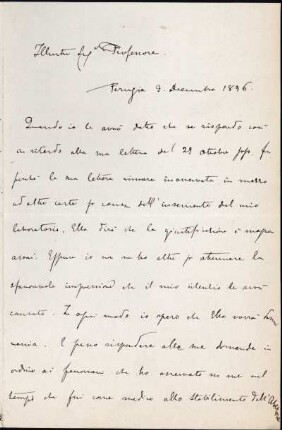 Illustre Sig. Professore.
Perugia 8. Dicembre 1896.
Quando io le avrò detto che se rispondo con
ritardo alla sua lettera del 29 ottobre fu
perché la sua lettera rimase inavvertita in mezzo
ad altre carte per causa dell' del mio
laboratorio, Ella dirà che la giustificazione è magra
assai. Eppure io non ne ho altre per attenuare la
spiacevole impressione che il mio silenzio le avrà
cagionato. In ogni modo io spero che Ella vorrà
. E posso rispondere alle sue domande in
ordine ai fenomeni che ho osservato su me nel
tempo che fui come medico allo stabilimento dell'